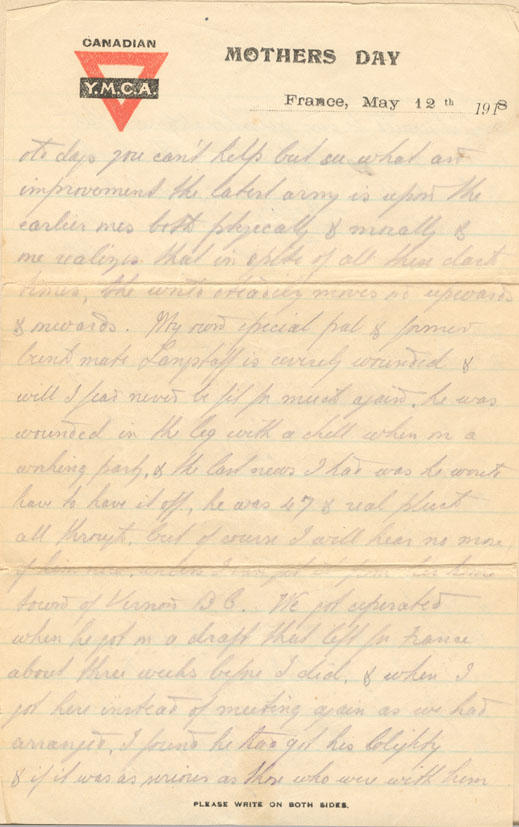 CANADIAN
Y.M.C.A.
MOTHERS DAY
France, May 12th 1918
days you can't help but see what an
improvement the latest army is upon the
earlier ones both physically & morally &
one realizes that in spite of all these dark
times, the world steadily moves on upwards
& onwards. My own special pal & former
bunk mate Langstaff is severely wounded &
will I fear never be fit for much again. he was
wounded in the leg with a shell when on a
working party, & the last news I had was he would
have to have it off, he was 47 & real pluck
all through. but of course I will hear no more
of him now, unless I
town of Vernon B.C. We got seperated
when he got on a draft that left for France
about three weeks before I did, & when I
got here instead of meeting again as we had
arranged, I found he had got his Blighty
& if it was as serious as those who were with him
PLEASE WRITE ON BOTH SIDES.